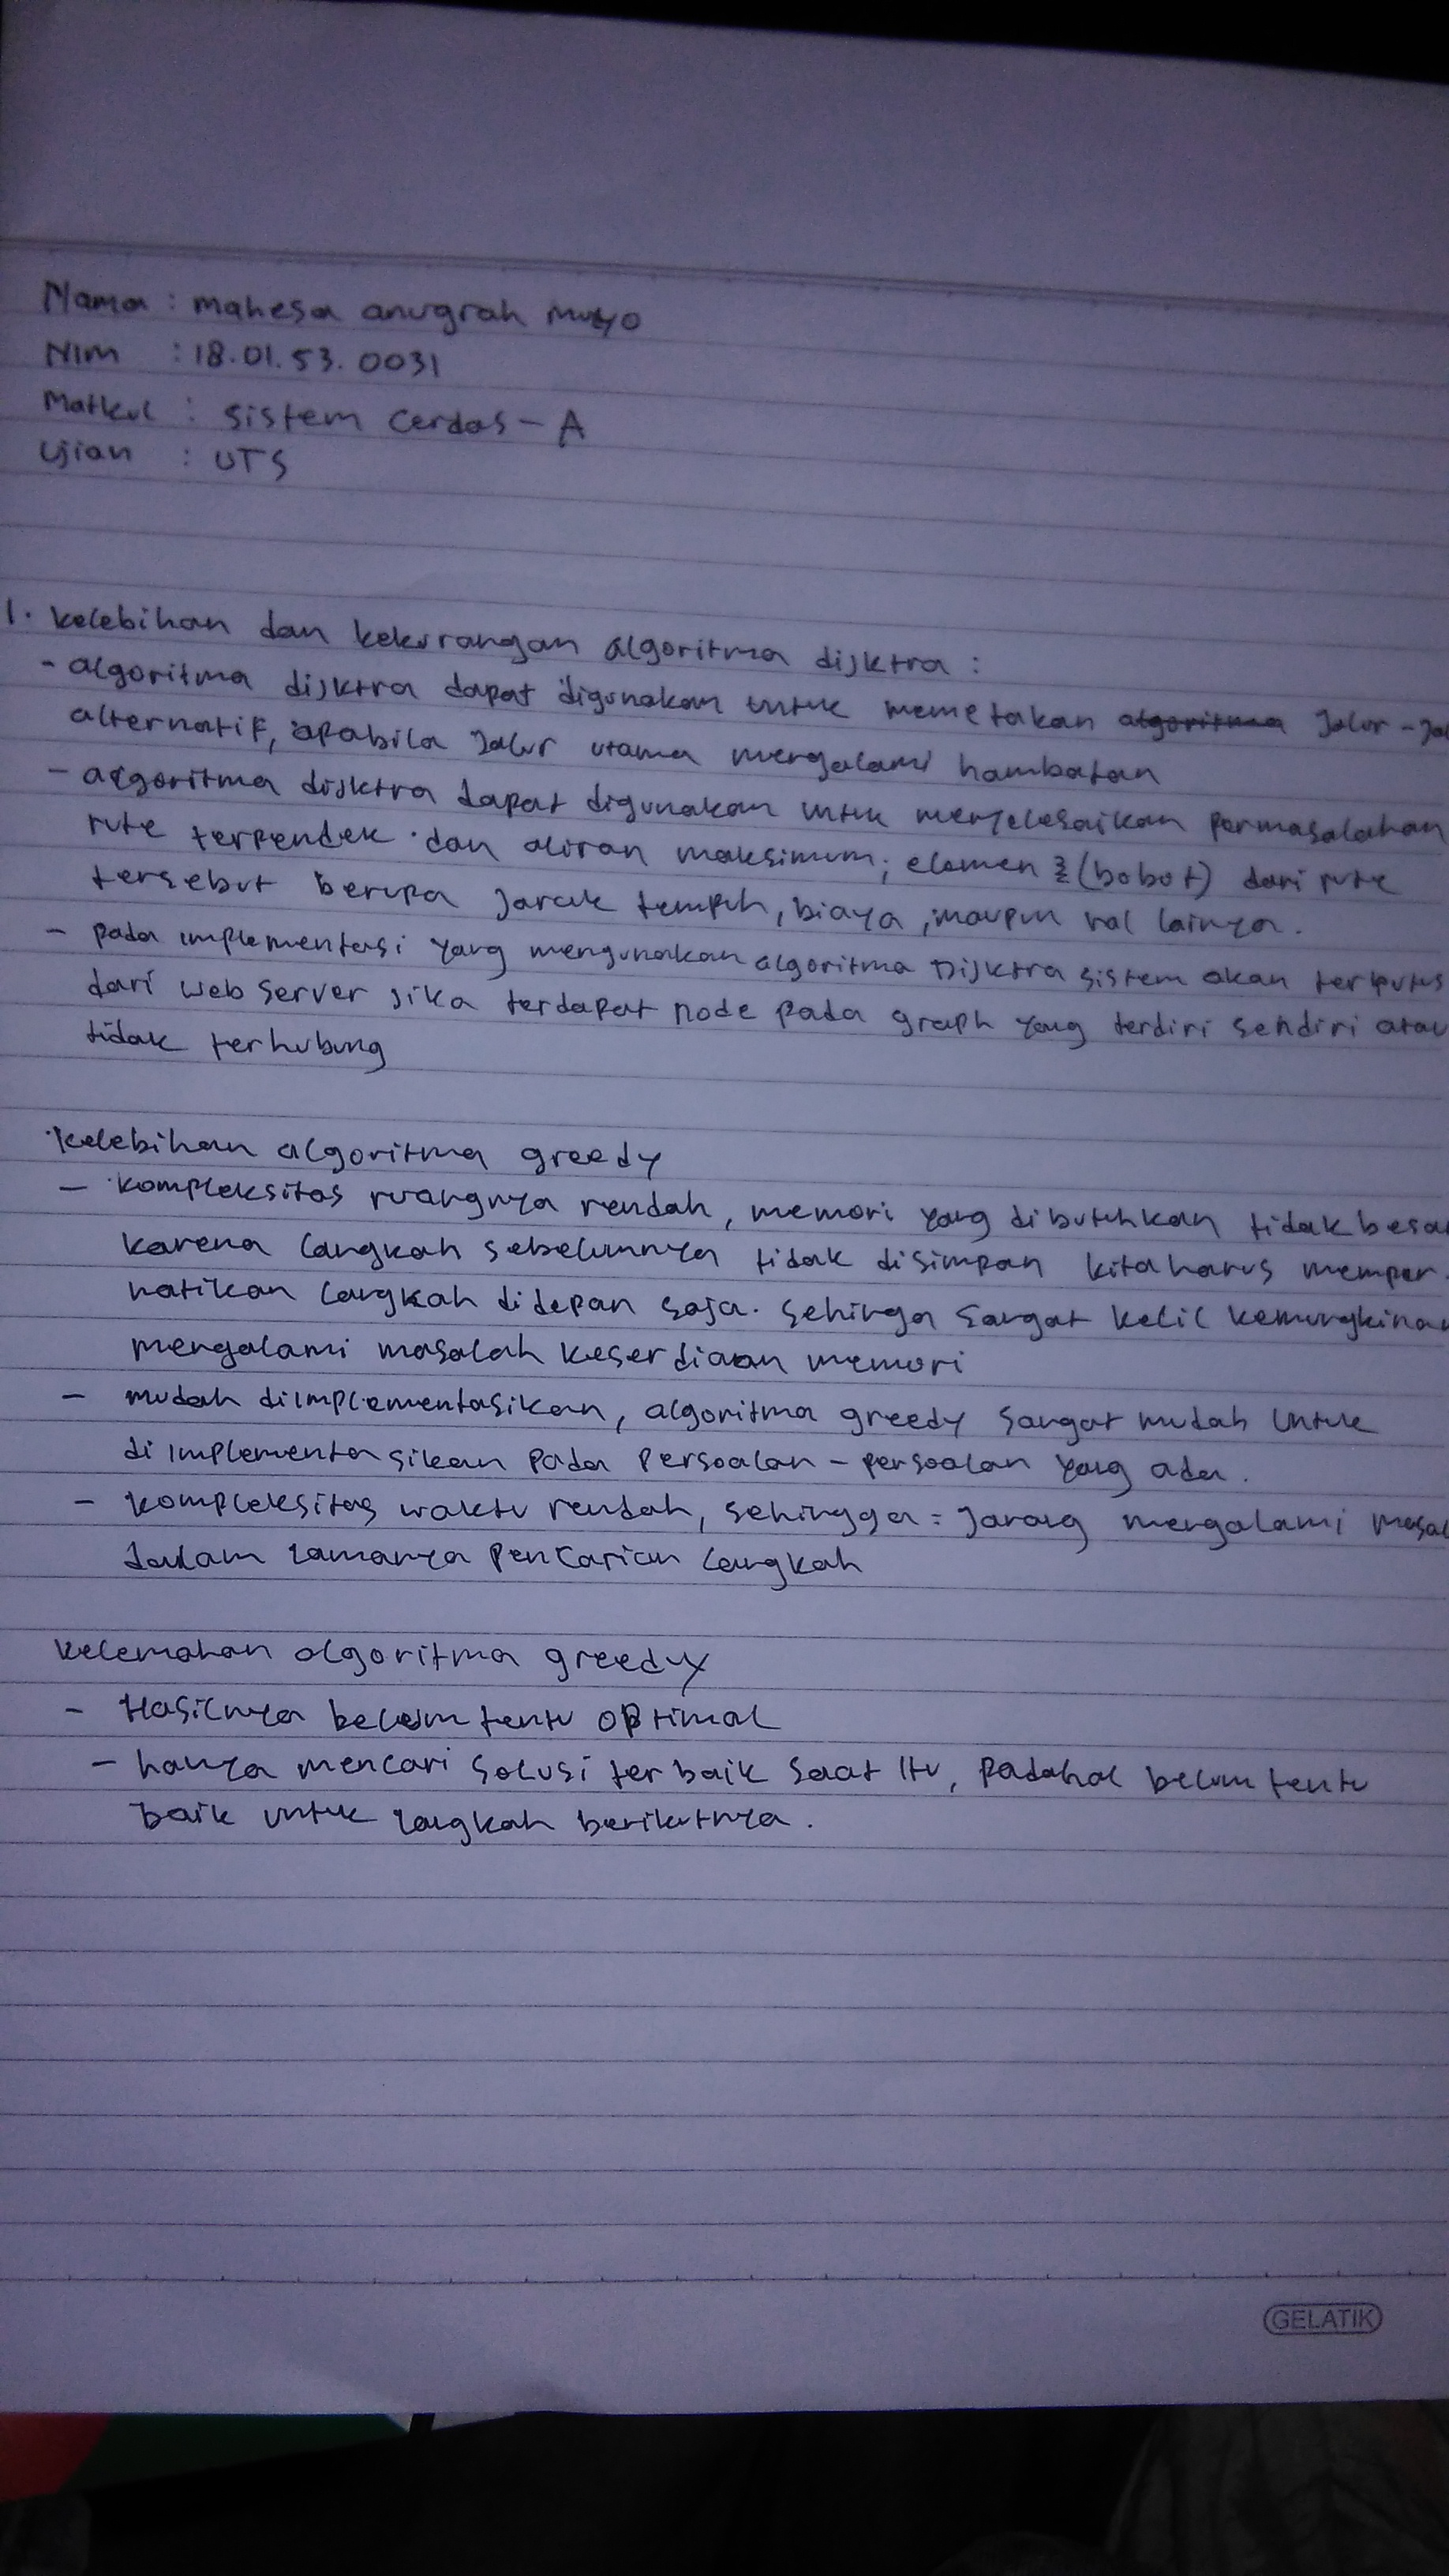 Nama : mahesa anugrah mulyo
Nim : 18.01.53.0031
Matkul : Sistem Cerdas - A
Ujian : UTS
1. kelebihan dan kekurangan algoritma dijktra :
- algoritma dijktra dapat digunakan untuk memetakan algoritma jalur - ja
alternatif, apabila jalur utama mengalami hambatan
- algoritma dijktra dapat digunakan untuk menyelesaikan permasalahan
rute terpendek dan aliran maksimum, elemen (bobot) dari rute
tersebut berupa jarak tempuh, biaya, maupun hal lainya.
- pada implementasi yang mengunakan algoritma Dijktra sistem akan terputus
dari web server jika terdapat node pada graph yang terdiri sendiri atau
tidak terhubung
kelebihan algoritma greedy
- kompleksitas ruangnya rendah, memori yang dibutuhkan tidak besa
karena langkah sebelumnya tidak disimpan kita harus memper -
hatikan langkah didepan saja. sehinga sangat kecil kemungkinan
mengalami masalah keserdiaan memori
- mudah diimplementasikan, algoritma greedy sangat mudah untuk
diimplementasikan pada persoalan - persoalan yang ada.
- kompleksitas waktu rendah, sehingga jarang mengalami masal
dalam lamanya pencarian langkah
kelemahan algoritma greedy
- Hasilnya belum tentu optimal
- hanya mencari solusi terbaik saat itu, padahal belum tentu
baik untuk langkah berikutnya.
GELATIK